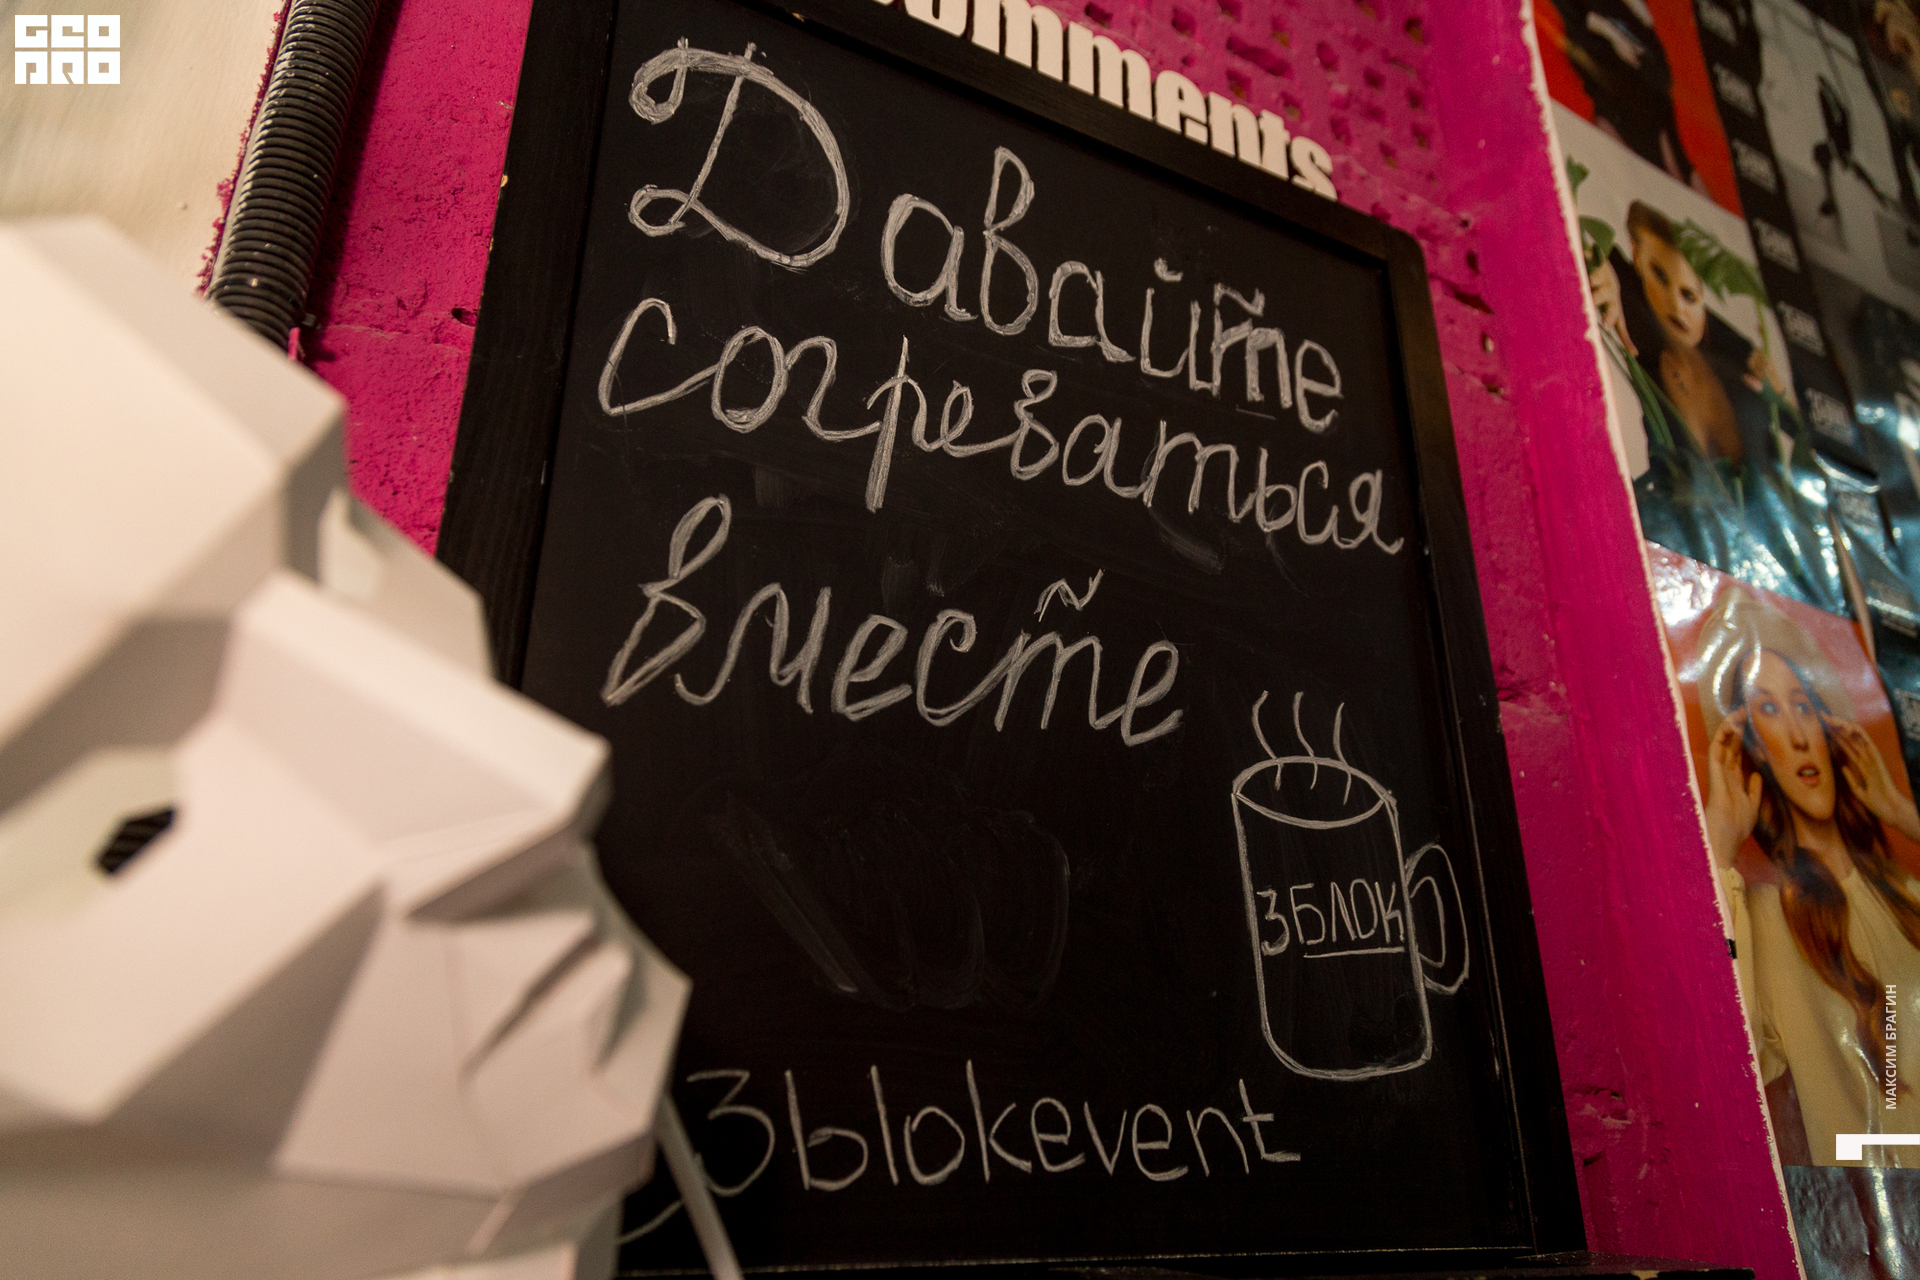 GEO
PRO
omments
Давайте
согреваться
вместе
3БЛОК
3blokevent
МАКСИМ БРАГИН